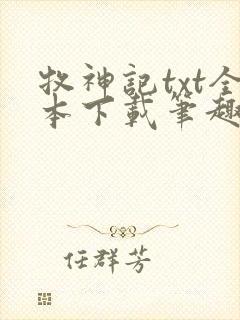 牧神記txt全
本下載筆趣
任群芳